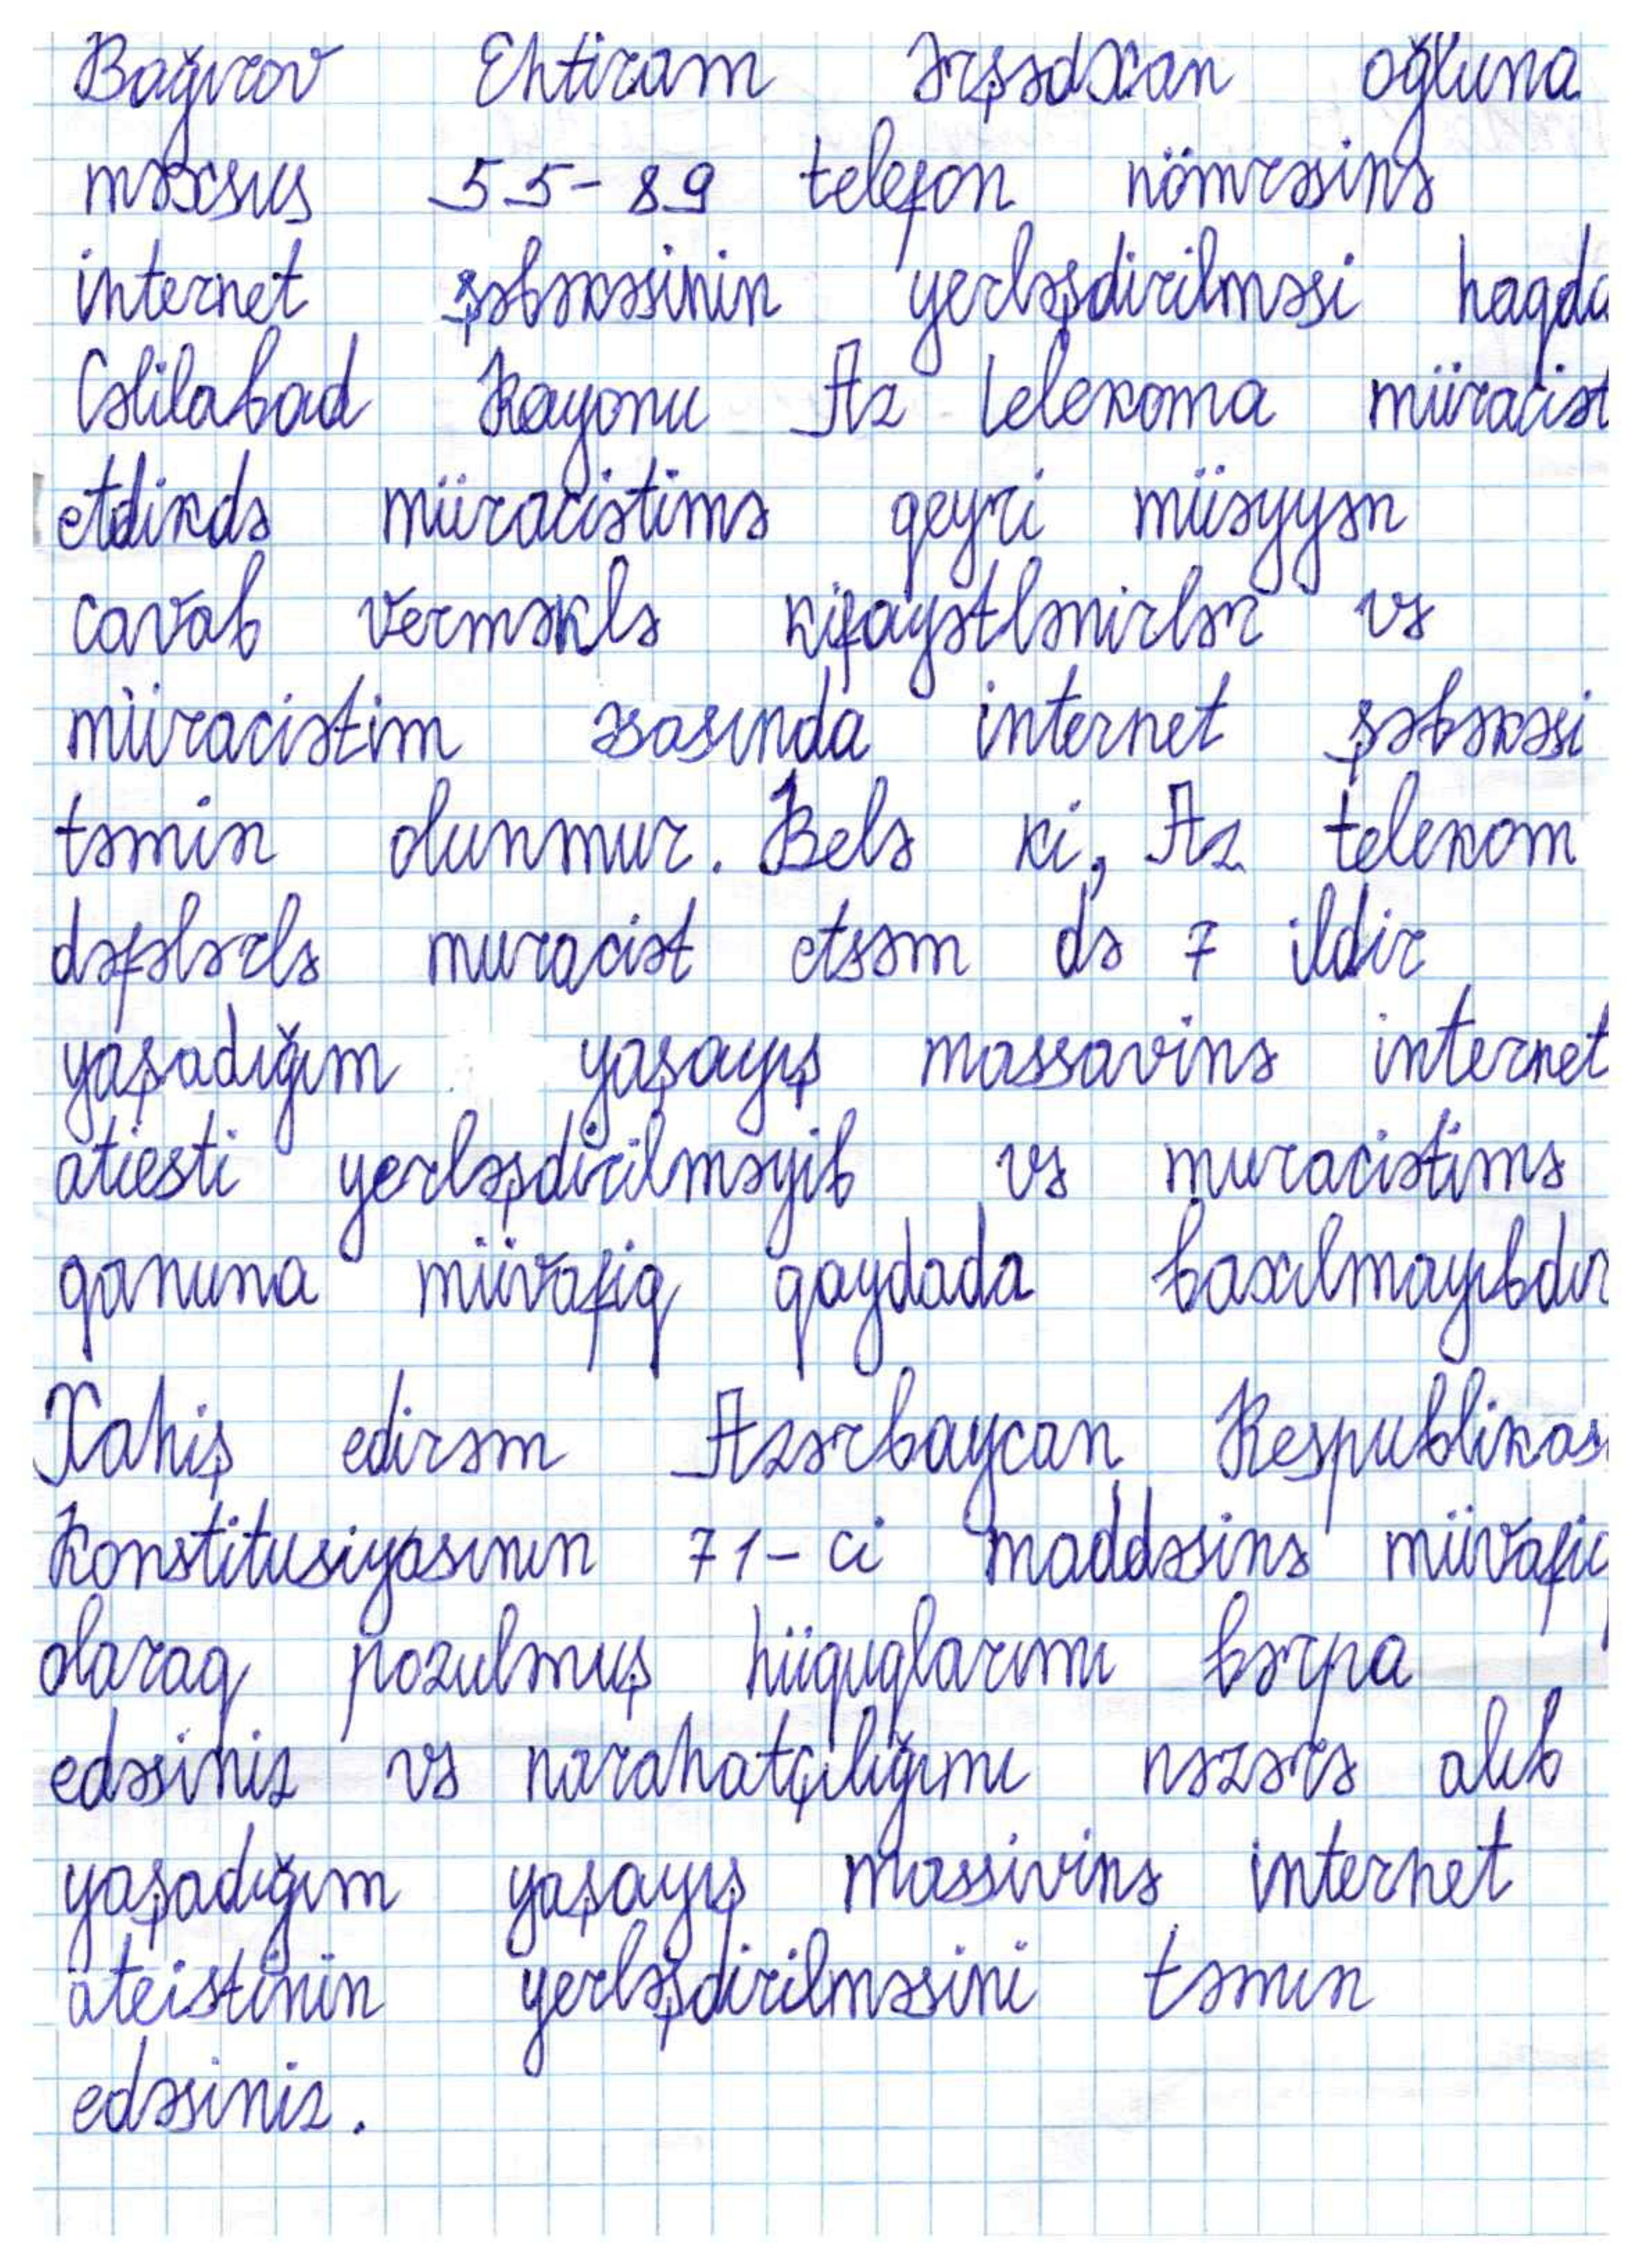 Bağırov Ehtiram Ərşədxan oğluna
məxsus 55-89 telefon nömrəsinə
internet şəbəkəsinin yerləşdirilməsi haqda
Cəlilabad Rayonu Az telekoma müraciət
etdikdə müraciətimə qeyri müəyyən
cavab verməklə kifayətlənirlər və
müraciətim əsasında internet şəbəkəsi
təmin olunmur. Belə ki, Az telekom
dəfələrlə muraciət etsəm də 7 ildir
yaşadığım yaşayış massavinə internet
atiesti yerləşdirilməyib və muraciətimə
qanuna müvafiq qaydada baxılmayıbdır
Xahiş edirəm Azərbaycan Respublikas
Konstitusiyasının 71-ci maddəsinə müvafiq
olaraq pozulmuş hüquqlarımı bərpa
edəsiniz və narahatçılığımı nəzərə alıb
yaşadığım yaşayış massivinə internet
ateistinin yerləşdirilməsini təmın
edəsiniz.